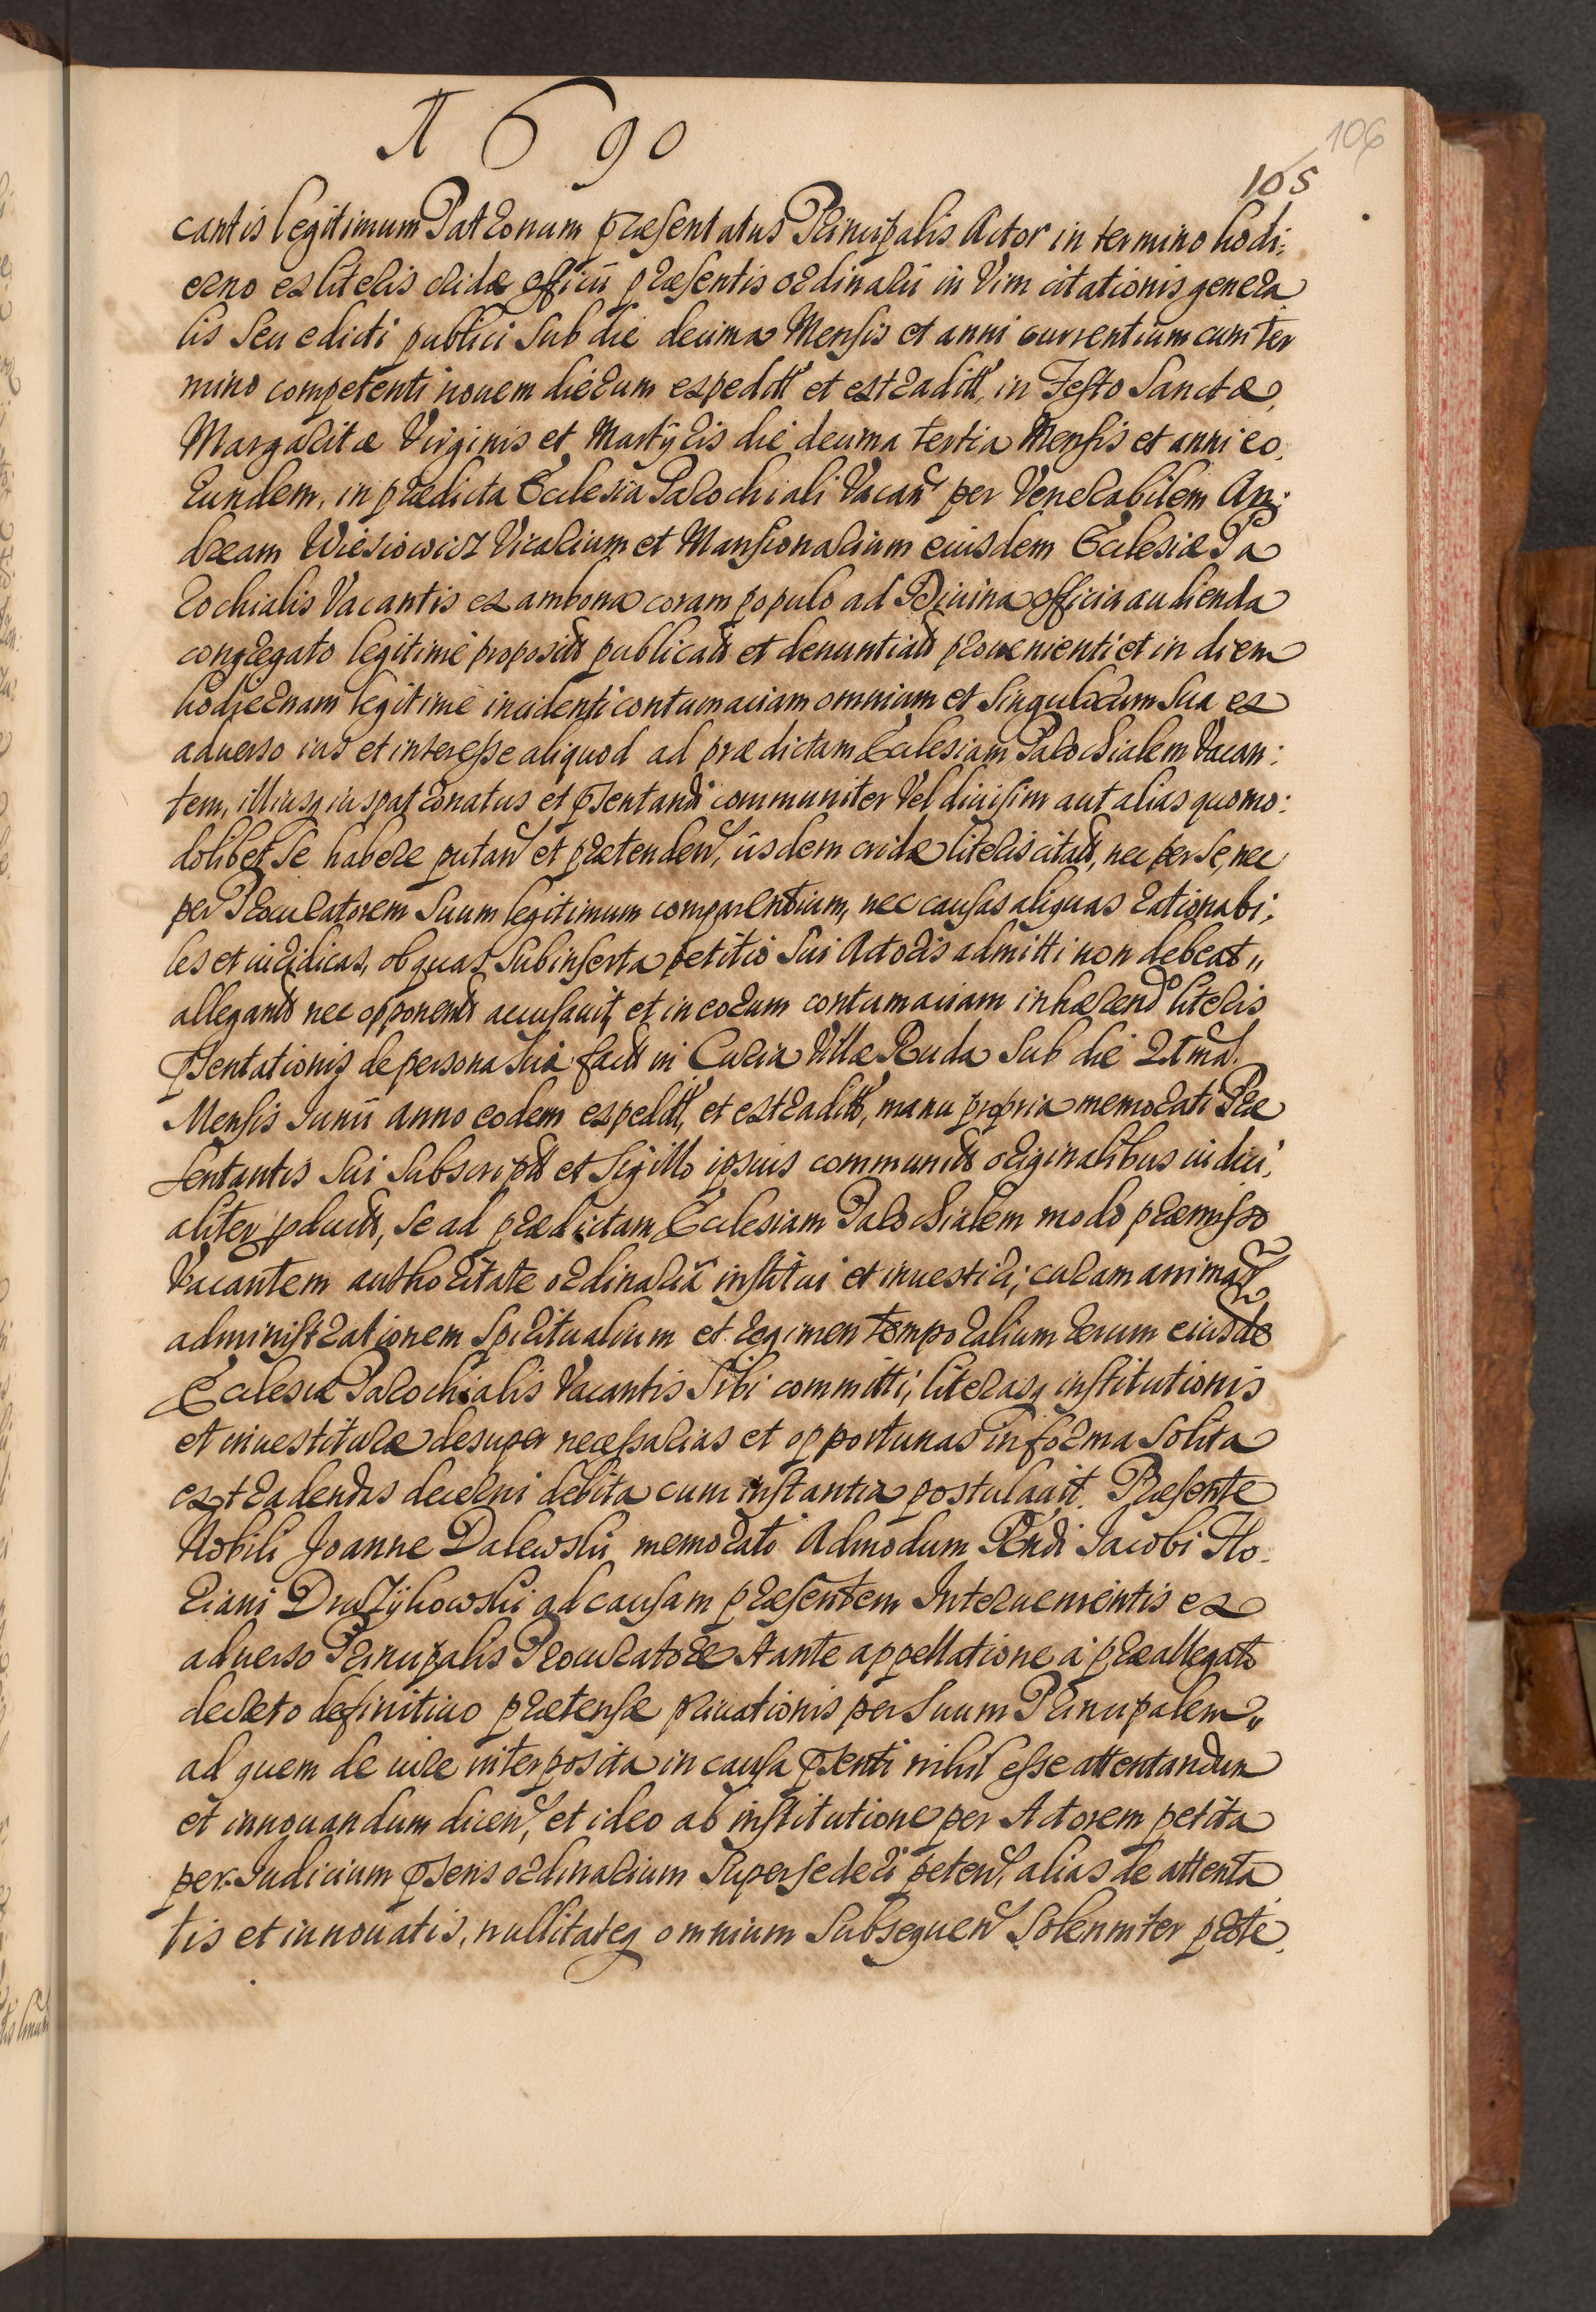 1690
106
105
cantis legitimum Patronum præsentatus Principalis Actor in termino hodi:
erno ex literis cridæ officii præsentis ordinarii in Vim citationis genera
lis seu edicti publici sub die decima Mensis et anni currentium cum ter
mino competenti nouem dierum expeditt et extraditt, in Festo Sanctæ
Margaritæ Virginis et Martyris die decima tertia Mensis et anni eo,
rundem, in prædicta Ecclesia Parochiali Vacan per Venerabilem An:
dream Wiesiowicz Vicarium et Mansionarium eiusdem Ecclesiæ Pa
rochialis Vacantis ex ambona coram populo ad Diuina officia audienda
congregato legitime proposit publicat et denuntiat prouenienti et in diem
hodiernam legitime incidenti contumaciam omnium et singulorum sua ex
aduerso ius et interesse aliquod ad prædictam Ecclesiam Parochialem Vacan:
tem, illiusq iuspatronatus et pñtandi communiter Vel diuisim aut alias quomo:
dolibet se habere putan et prætenden, iisdem cridæ literis citat, nec per se, nec
per Procuratorem suum legitimum comparentium, nec causas aliquas rationabi:
les et iuridicas, ob quas subinserta petitio sui Actoris admitti non debeat,,
allegant nec opponent accusauit, et in eorum contumaciam inhærendo literis
pñtationis de persona sua fact in Curia Villæ Ruda sub die
Mensis Iunii anno eodem expeditt, et extraditt, manu propria memorati Præ
sentantis sui subscript et sigillo ipsius communit originalibus iudici,
aliter pduct, se ad prædictam Ecclesiam Parochialem modo præmisso
Vacantem authoritate ordinaria institui et inuestiri; curam animar
administrationem spiritualium et regimen temporalium rerum eiusde
Ecclesiæ Parochialis Vacantis sibi committi; literasq institutionis
et inuestituræ desuper necessarias et opportunas in forma solita
extradendas decerni debita cum instantia postulauit. Præsente
Nobili Joanne Dalewski memorato Admodum Rndi Iacobi Flo
riani Druzÿkowski ad causam præsentem Interuenientis ex
aduerso Principalis Procuratore stante appellatione a præallegato
decreto definitiuo prætensæ priuationis per suum Principalem,,
ad quem de iure interposita in causa pñti nihil esse attentandum
et innouandum dicen, et ideo ab institutione per Actorem petita
per Iudicium pñs ordinarium supersederi peten, alias de attenta
tis et innouatis, nullitateq omnium subsequen solenniter prote,